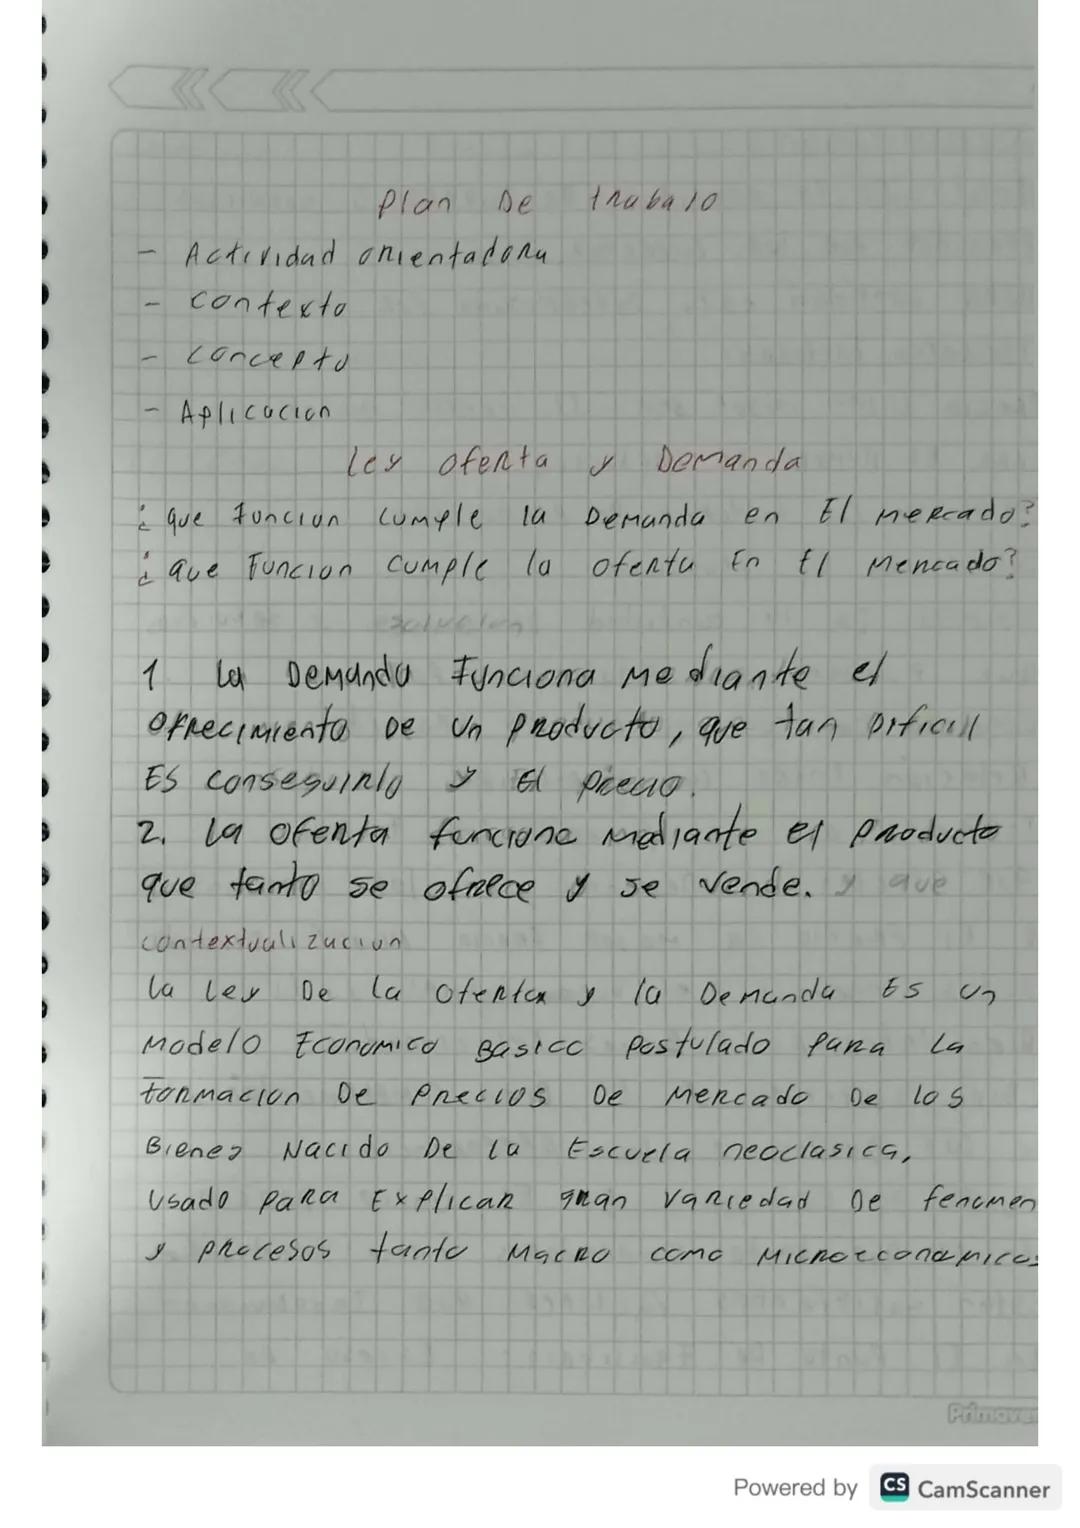 Plan De trabajo
- Actividad orientadora
- contexto
- concepto
- Aplicacion
Ley oferta y Demanda
¿ que funcion cumple la Demanda en El mercado?
¿ que Funcion cumple la oferta En El Mercado?
1 La Demanda Funciona Mediante el
ofrecimiento De un producto, que tan Dificil
ES conseguirlo y El precio.
2. La oferta funciona mediante el producto
que tanto se ofrece y se vende. y que
contextualizacion
La Ley De La oferta y la Demanda Es un
Modelo Economico Basico postulado para La
Formacion De Precios De Mercado De los
Bienes Nacido De la Escuela neoclasica,
Usado para Explicar gran variedad De fenomen
y procesos tanto Macro como Microeconomicos
Primave
Powered by CS CamScanner